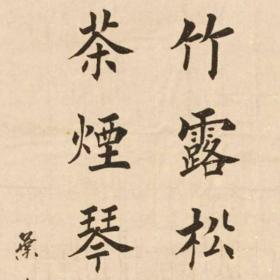 竹露松
茶煙琴